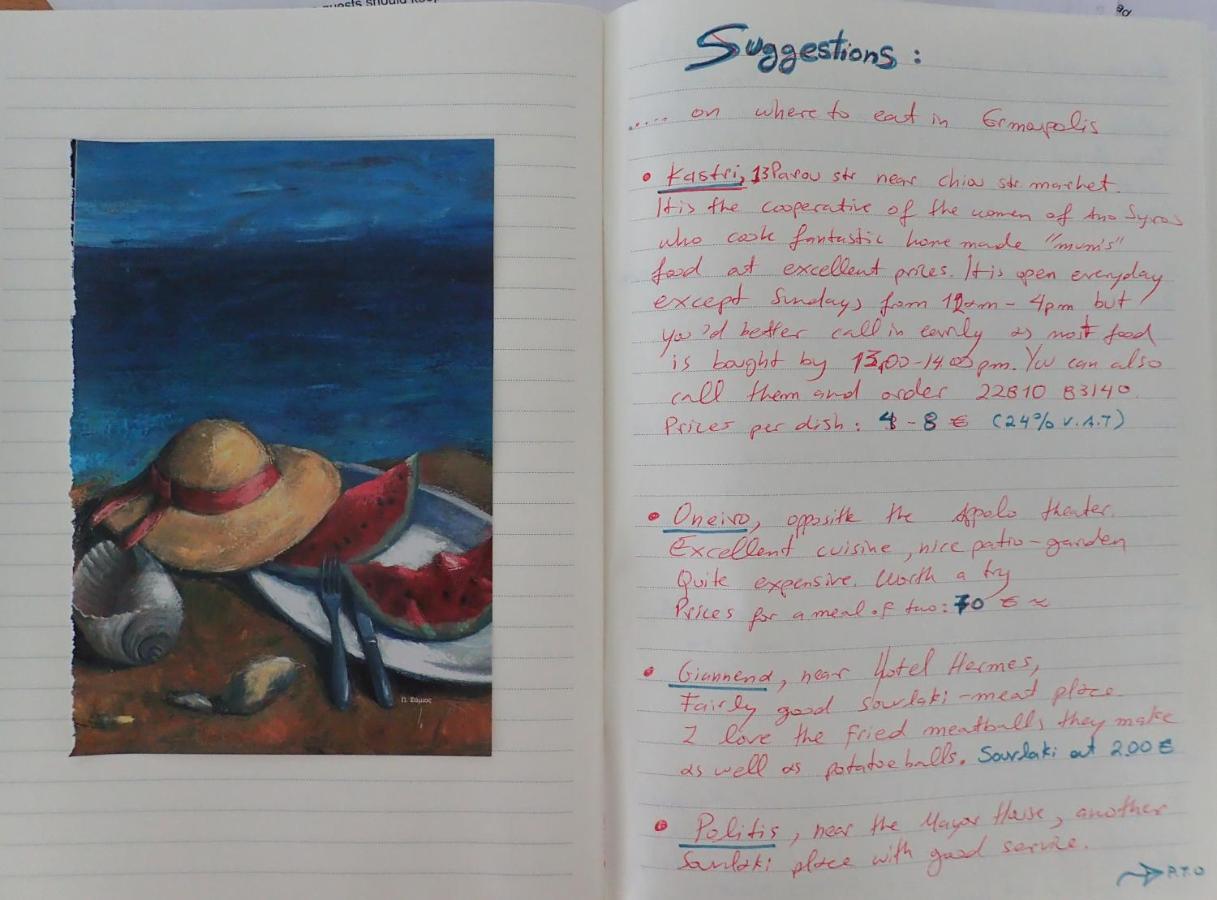 guests should keep
Suggestions :
..... on where to eat in Ermoupolis
• Kastri, 13 Parou str near chiou str. market.
It is the cooperative of the women of Ano Syros
who cook fantastic home made "mum's"
food at excellent prices. It is open everyday
except Sundays from 12am - 4pm but
you'd better call in early as most food
is bought by 13,00-14.00 pm. You can also
call them and order 22810 83140.
Prices per dish : 4 - 8 € (24% V.A.T)
• Oneiro, opposite the Apolo theater.
Excellent cuisine, nice patio-garden
Quite expensive. Worth a try
Prices for a meal of two: 70 € ~
• Giannena, near Hotel Hermes,
Fairly good Souvlaki-meat place.
I love the fried meatballs they make
as well as potatoe balls. Souvlaki at 2.00 €
• Politis, near the Mayor House, another
Souvlaki place with good service.
→ P.T.O
Π. Σάμιος